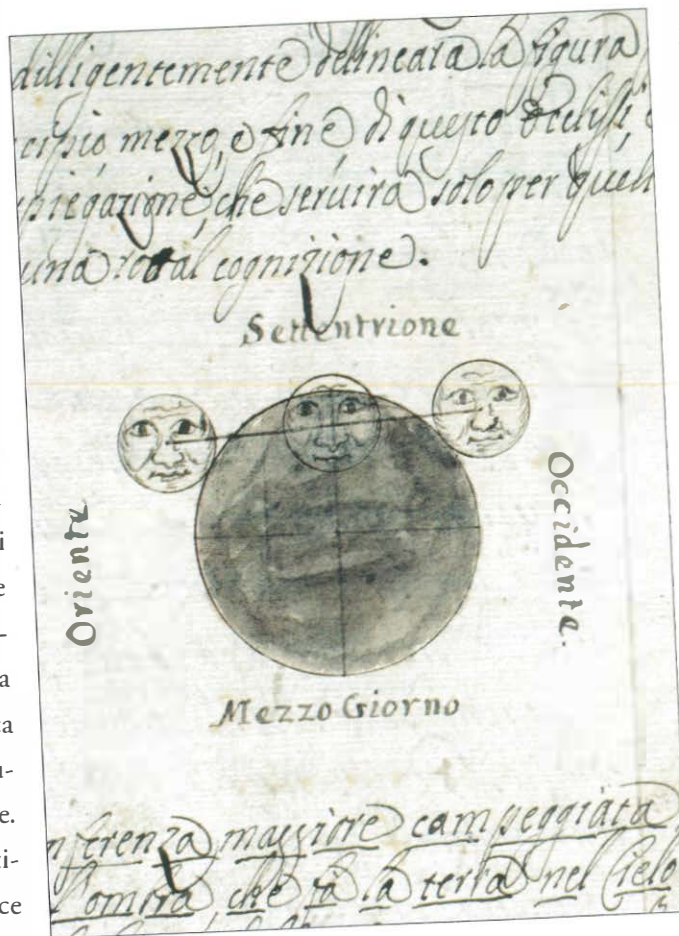 dilligentemente delineata la figura
cipio, mezzo, e fine di questo Ecclissi,
piegazione, che seruirà solo per quell
una total cognizione.
Settentrione
Oriente
Occidente.
Mezzo Giorno
nferenza maggiore campeggiata
l'ombra, che fà la terra nel Cielo
i
e
-
a
ta
u-
e.
ti-
ce